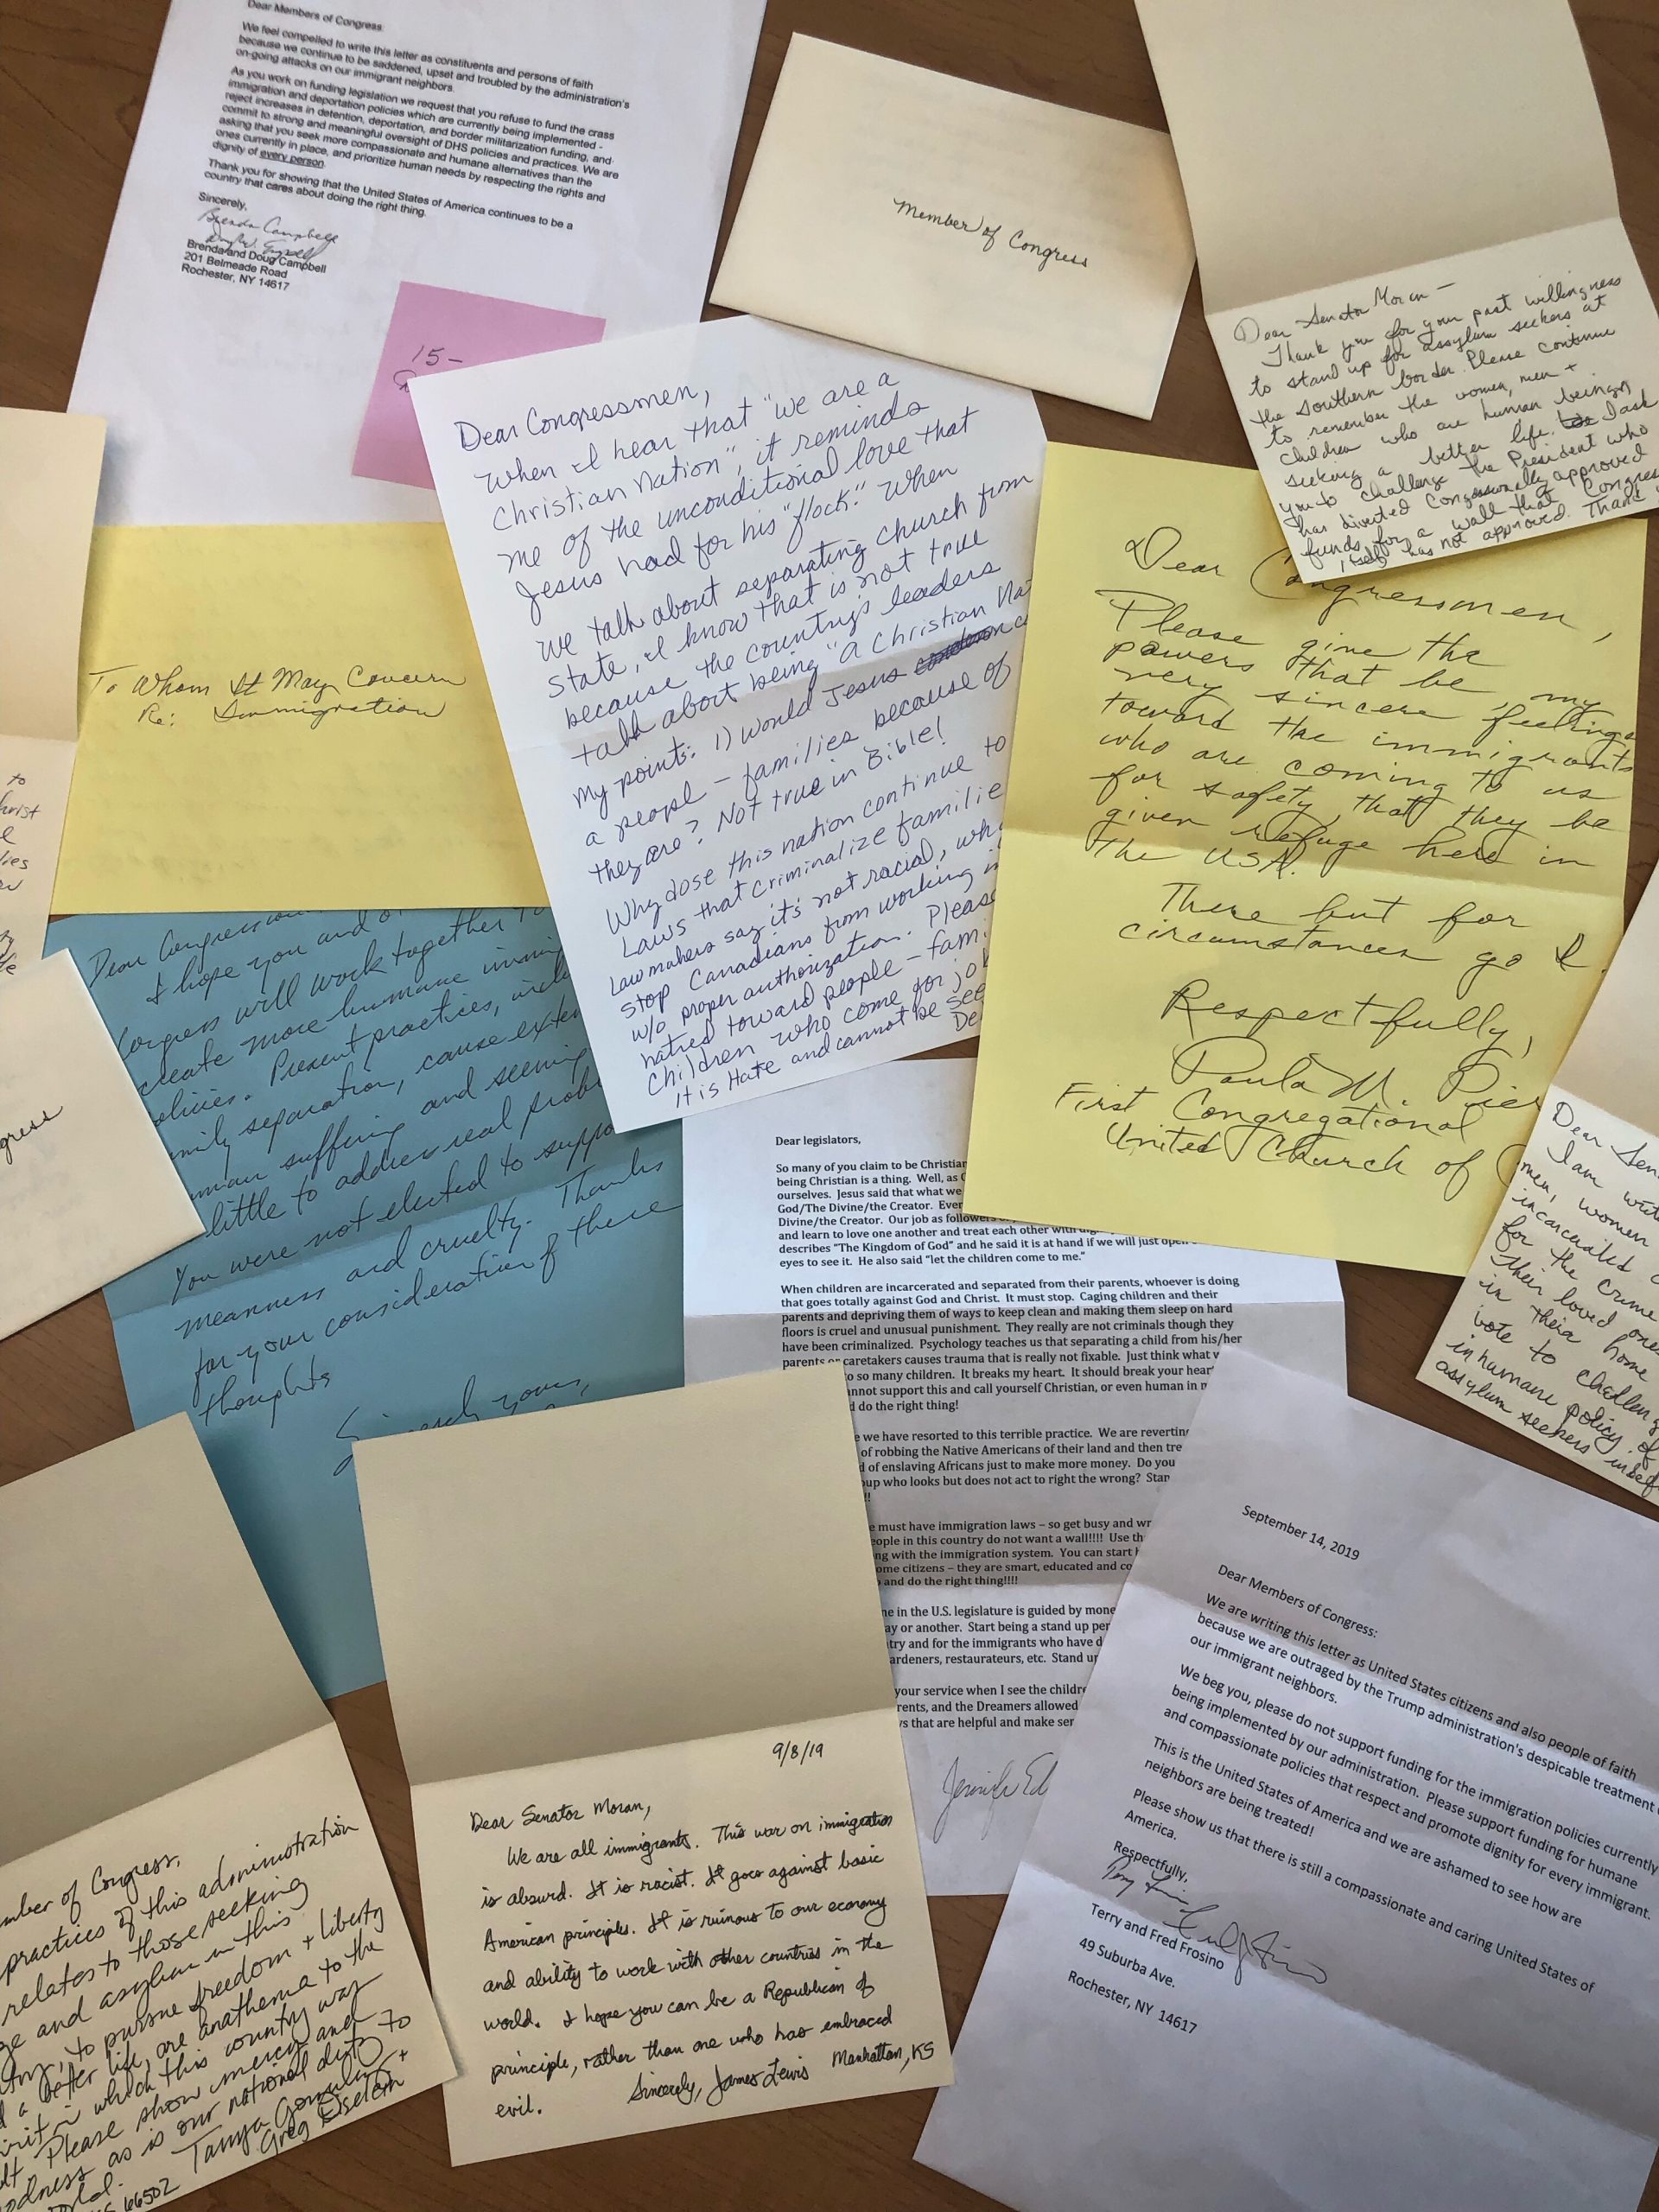 Dear Members of Congress
We feel compelled to write this letter as constituents and persons of faith
because we continue to be saddened, upset and troubled by the administration's
on-going attacks on our immigrant neighbors.
As you work on funding legislation we request that you refuse to fund the crass
immigration and deportation policies which are currently being implemented -
reject increases in detention, deportation, and border militarization funding, and
commit to strong and meaningful oversight of DHS policies and practices. We are
asking that you seek more compassionate and humane alternatives than the
ones currently in place, and prioritize human needs by respecting the rights and
dignity of every person.
Thank you for showing that the United States of America continues to be a
country that cares about doing the right thing.
Sincerely,
Brenda Campbell
Brenda and Doug Campbell
201 Belmeade Road
Rochester, NY 14617
15-
Member of Congress
Dear Senator Moran —
Thank you for your past willingness
to stand up for assylum seekers at
the Southern border. Please continue
to remember the women, men +
children who are human beings
seeking a better life. I ask
you to challenge the President who
has diverted Congressionally approved
funds for a wall that Congress
itself has not approved. Thank
Dear Congressmen,
When I hear that "we are a
Christian Nation", it reminds
me of the unconditional love that
Jesus had for his "flock." When
we talk about separating church from
state, I know that is not true
because the country's leaders
talk abort being "a Christian Na
my points: 1) Would Jesus
a people - families because of
they are? Not true in Bible!
Why dose this nation continue to
Laws that criminalize familie
Lawmakers say it's not racial, wh
stop Canadians from working i
w/o proper authorization. Please
hatred toward people - fam
Children who come for jo
It is Hate and cannot be see
De
To Whom It May Concern
Re: Immigration
Dear Congressmen,
Please give the
powers that be, my
very sincere feelings
toward the immigrants
who are coming to us
for safety, that they be
given refuge here in
the USA.
There but for
circumstances go I.
Respectfully,
Paula M. Pier
First Congregational
United Church of
to
hrist
Dear Congress
I hope you and
Congress will work together to
create more humane immi
policies. Present practices, incl
mily separation, cause exten
man suffering and seeming
little to address real prob
You were not elected to suppo
meanness and cruelty. Thanks
for your consideration of these
thoughts
Sincerely yours,
gress
Dear legislators,
So many of you claim to be Christian
being Christian is a thing. Well, as C
ourselves. Jesus said that what we
God/The Divine/the Creator. Ever
Divine/the Creator. Our job as followers
and learn to love one another and treat each other with
describes "The Kingdom of God" and he said it is at hand if we will just open
eyes to see it. He also said "let the children come to me."
When children are incarcerated and separated from their parents, whoever is doing
that goes totally against God and Christ. It must stop. Caging children and their
parents and depriving them of ways to keep clean and making them sleep on hard
floors is cruel and unusual punishment. They really are not criminals though they
have been criminalized. Psychology teaches us that separating a child from his/her
parents or caretakers causes trauma that is really not fixable. Just think what
o so many children. It breaks my heart. It should break your heart
nnot support this and call yourself Christian, or even human in
d do the right thing!
e we have resorted to this terrible practice. We are reverting
of robbing the Native Americans of their land and then tre
d of enslaving Africans just to make more money. Do you
oup who looks but does not act to right the wrong? Stan
!!
e must have immigration laws – so get busy and wr
eople in this country do not want a wall!!!! Use th
ng with the immigration system. You can start
ome citizens – they are smart, educated and co
and do the right thing!!!!
ne in the U.S. legislature is guided by mone
ay or another. Start being a stand up per
try and for the immigrants who have d
ardeners, restaurateurs, etc. Stand u
your service when I see the childre
rents, and the Dreamers allowed
s that are helpful and make ser
Jennifer Ed
Dear Sen
I am writ
men, women
incarcerated
for the crime
their loved ones
in their home
vote to challeng
inhumane policy of
assylum seekers indef
September 14, 2019
Dear Members of Congress:
We are writing this letter as United States citizens and also people of faith
because we are outraged by the Trump administration's despicable treatment
our immigrant neighbors.
We beg you, please do not support funding for the immigration policies currently
being implemented by our administration. Please support funding for humane
and compassionate policies that respect and promote dignity for every immigrant.
This is the United States of America and we are ashamed to see how are
neighbors are being treated!
Please show us that there is still a compassionate and caring United States of
America.
Respectfully,
Terry and Fred Frosino
49 Suburba Ave.
Rochester, NY 14617
9/8/19
Dear Senator Moran,
We are all immigrants. This war on immigration
is absurd. It is racist. It goes against basic
American principles. It is ruinous to our economy
and ability to work with other countries in the
world. I hope you can be a Republican of
principle, rather than one who has embraced
evil.
Sincerely, James Lewis Manhattan, KS
mber of Congress,
practices of this administration
relates to those seeking
ge and asylum in this
try, to pursue freedom + liberty
d a better life, are anathema to the
irit in which this country was
lt. Please show mercy and
oodness as is our national duty to
orld.
Tanya González +
Greg Eiselein
66502